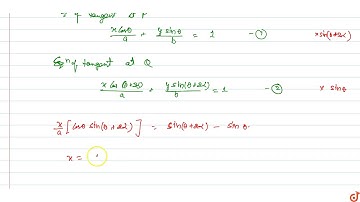 of tangent at P
x cosθ/a + y sinθ/b = 1 — ① x sin(θ+2α)
Eqⁿ of tangent at Q
x cos(θ+2α)/a + y sin(θ+2α)/b = 1 — ② x sinθ
x/a [cosθ sin(θ+2α)] = sin(θ+2α) - sinθ
x =